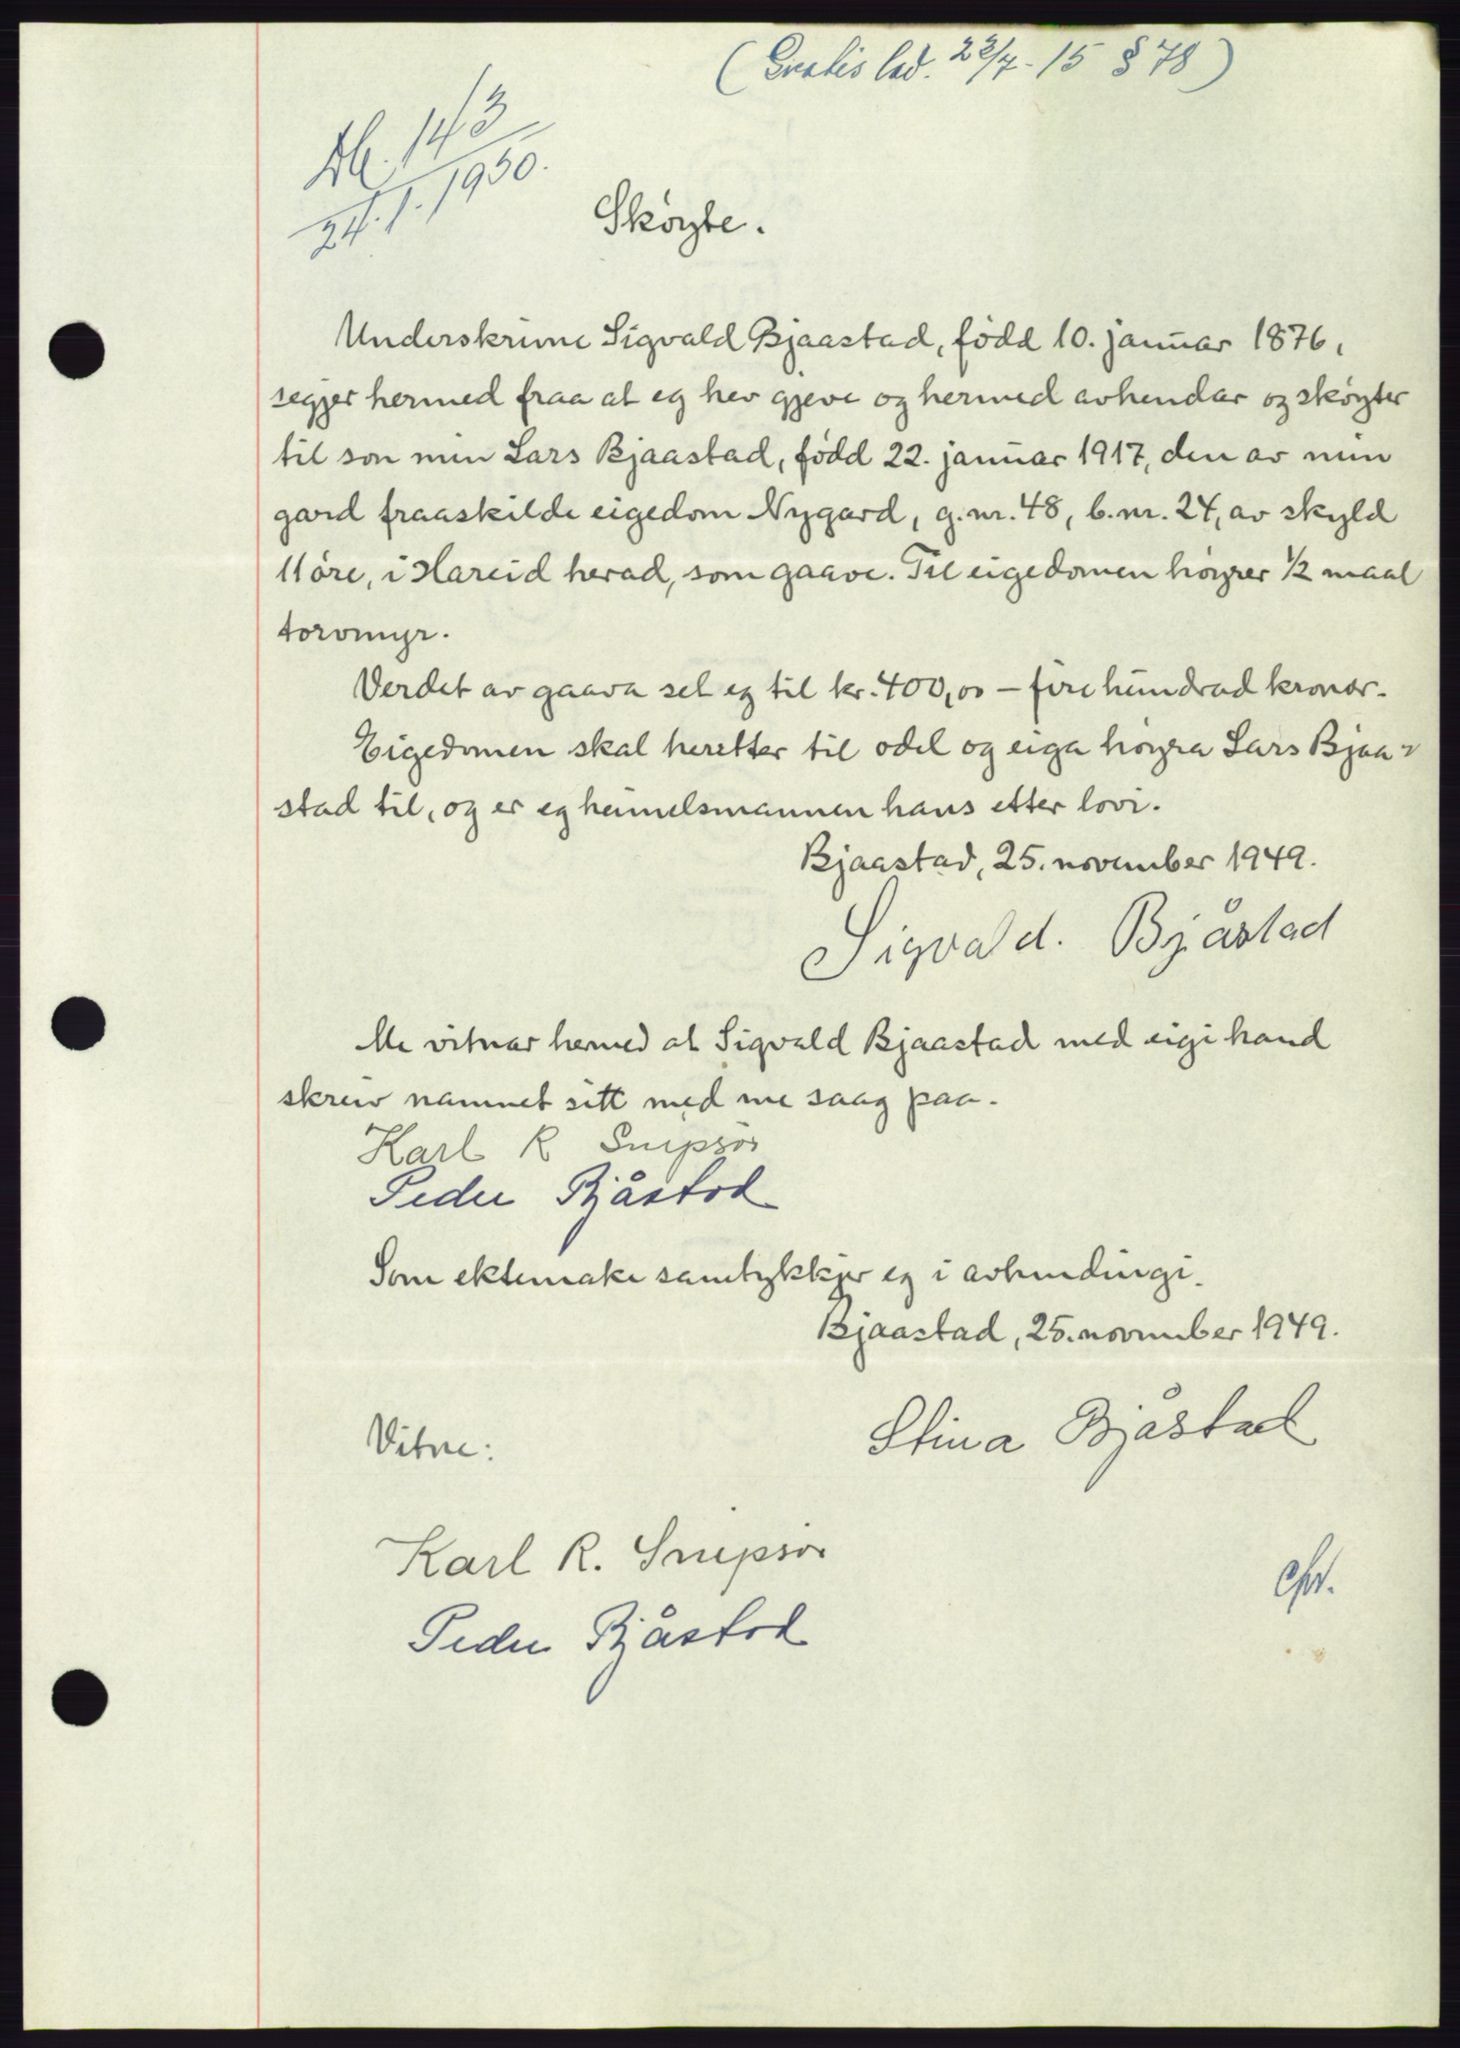 (Gratis lov. 23/7-15 § 78)
Db. 143
24.1.1950.
Skøyte.
Underskrivne Sigvald Bjaastad, född 10. januar 1876,
segjer hermed fraa at eg hev gjeve og hermed avhendar og skøyter
til son min Lars Bjaastad, född 22. januar 1917, den av min
gard fraaskilde eigedom Nygard, g.nr. 48, b.nr. 24, av skyld
11 öre, i Hareid herad, som gaave. Til eigedomen höyrer 1/2 maal
torvmyr.
Verdet av gaava set eg til kr. 400,00 - fire hundrad kronor.
Eigedomen skal heretter til odel og eiga höyra Lars Bjaa=
stad til, og er eg heimelsmannen hans etter lovi.
Bjaastad, 25. november 1949.
Sigvald. Bjåstad
Me vitnar hermed at Sigvald Bjaastad med eigi hand
skreiv namnet sitt med me saag paa.
Karl R Snipsör
Peder Bjåstad
Som ektemake samtykkjer eg i avhendingi.
Bjaastad, 25. november 1949.
Stina Bjåstad
Vitne:
Karl R. Snipsör
Peder Bjåstad